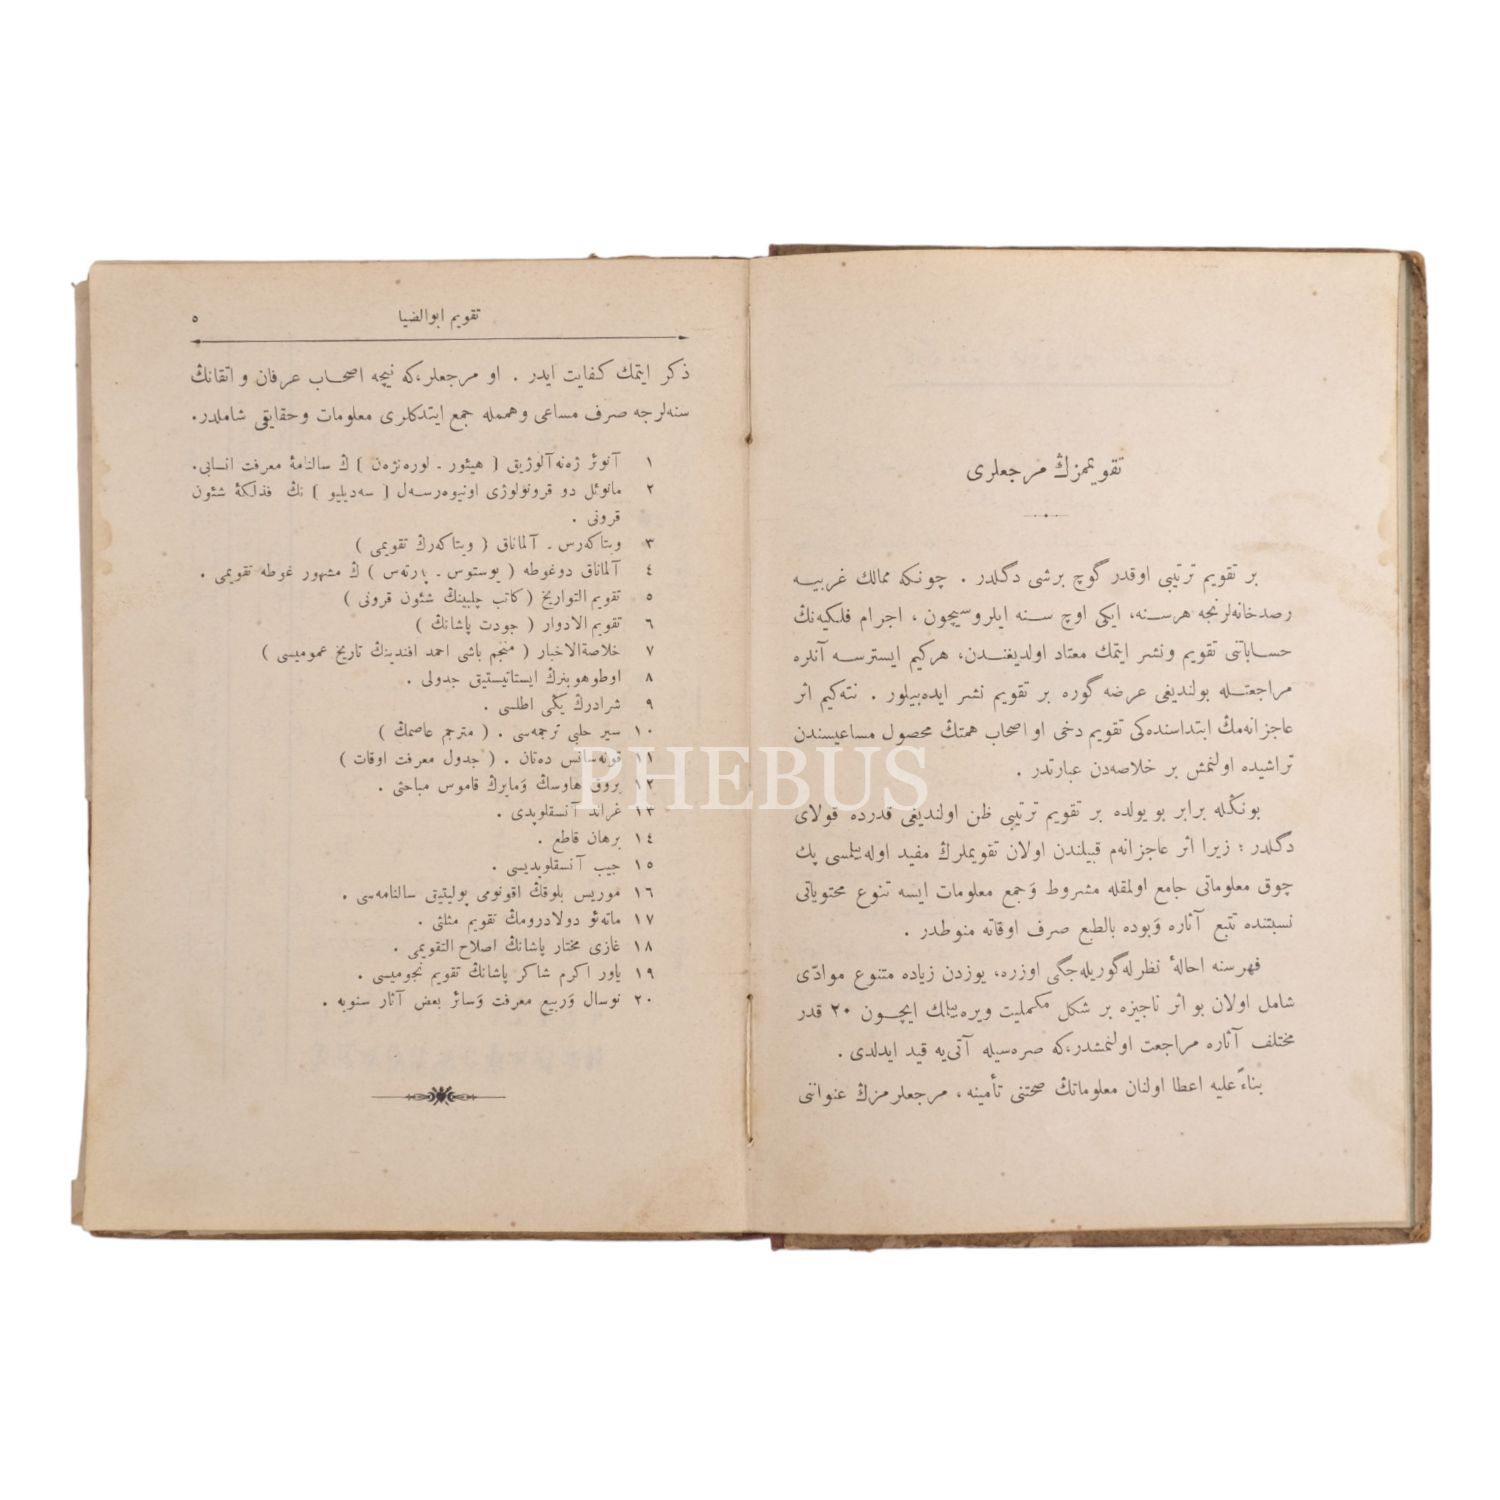 تقویممزڭ مرجعلری
بر تقویم ترتیبی اوقدر گوچ برشی دگلدر . چونکه ممالك غربیه
رصدخانه‌لرنجه هرسنه، ایکی اوچ سنه ایلروسیچون ، اجرام فلکیه‌نڭ
حساباتی تقویم ونشر ایتمك معتاد اولدیغندن، هرکیم ایسترسه آنلره
مراجعتله بولندیغی عرضه گوره بر تقویم نشر ایده‌بیلور . نته‌کیم اثر
عاجزانه‌مڭ ابتداسنده‌کی تقویم دخی او اصحاب همتڭ محصول مساعیسندن
تراشیده اولنمش بر خلاصه‌دن عبارتدر .
بونڭله برابر بو یولده بر تقویم ترتیبی ظن اولندیغی قدرده قولای
دگلدر ؛ زیرا اثر عاجزانه‌م قبیلندن اولان تقویملرڭ مفید اوله‌بیلمسی پك
چوق معلوماتی جامع اولمقله مشروط وَجمع معلومات ایسه تنوع محتویاتی
نسبتنده تتبع آثاره وَبوده بالطبع صرف اوقاته منوطدر .
فهرسنه احالهٔ نظرله‌گوریله‌جگی اوزره، یوزدن زیاده متنوع موادّی
شامل اولان بو اثر ناچیزه بر شکل مکملیت ویره‌بیلمك ایچون ٢٠ قدر
مختلف آثاره مراجعت اولنمشدر،که صره‌سیله آتی‌یه قید ایدلدی .
بناءً علیه اعطا اولنان معلوماتڭ صحتنی تأمینه ، مرجعلرمزڭ عنواننی
تقویم ابوالضیا
٥
ذکر ایتمك کفایت ایدر . او مرجعلر،که نیچه اصحاب عرفان و اتقانڭ
سنه‌لرجه صرف مساعی وهممله جمع ایتدکلری معلومات وحقایقی شاملدر.
١ آنوئر ژه‌نه‌آلوژیق [ هیئور ـ لوره‌نژه‌ن ] ڭ سالنامهٔ معرفت انسابی.
٢ مانوئل دو قرونولوژی اونیوه‌رسه‌ل [ سه‌دیلیو ] نڭ فذلکهٔ شئون
قرونی .
٣ ویتاکه‌رس ـ آلماناق ( ویتاکه‌رڭ تقویمی )
٤ آلماناق دوغوطه ( یوستوس ـ پارته‌س ) ڭ مشهور غوطه تقویمی .
٥ تقویم التواریخ ( کاتب چلبینڭ شئون قرونی )
٦ تقویم الادوار ( جودت پاشانڭ )
٧ خلاصةالاخبار ( منجم باشی احمد افندینڭ تاریخ عمومیسی )
٨ اوطوهوبنرڭ ایستاتیستیق جدولی .
٩ شرادرڭ یڭی اطلسی .
١٠ سیر حلبی ترجمه‌سی . ( مترجم عاصمڭ )
١١ قونه‌سانس ده‌تان . ( جدول معرفت اوقات )
١٢ بروق هاوسڭ وَمایرڭ قاموس مباحثی .
١٣ غراند آنسقلوپدی .
١٤ برهان قاطع .
١٥ جیب آنسقلوپدیسی .
١٦ موریس بلوقڭ اقونومی پولیتیق سالنامه‌سی .
١٧ ماته‌ئو دولادرومڭ تقویم مثلثی .
١٨ غازی مختار پاشانڭ اصلاح التقویمی .
١٩ یاور اکرم شاکر پاشانڭ تقویم نجومیسی .
٢٠ نوسال وَربیع معرفت وَسائر بعض آثار سنویه .
PHEBUS